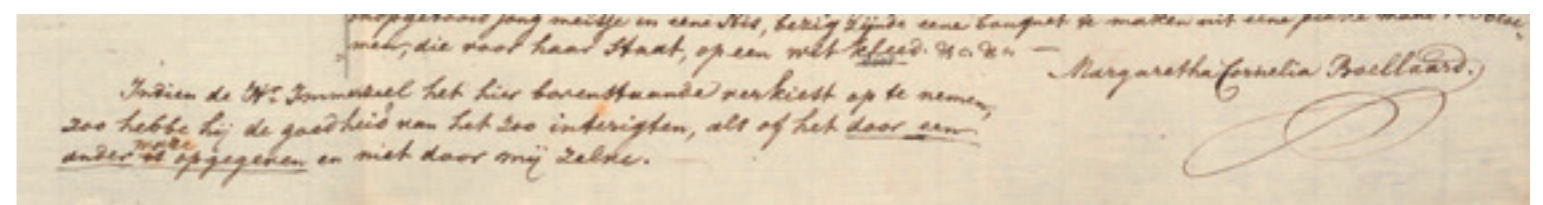 jong meisje in eene Nis, bezig zijnde eene bouquet te maken uit eene
men, die voor haar Staat, op een wit kleed. &c. &c. —
Margaretha Cornelia Boellaard.
Indien de Hr. Immerzeel het hier bovenstaande verkiest op te nemen,
zoo hebbe hij de goedheid van het zoo interigten, als of het door een
ander is opgegeven en niet door mij zelve.